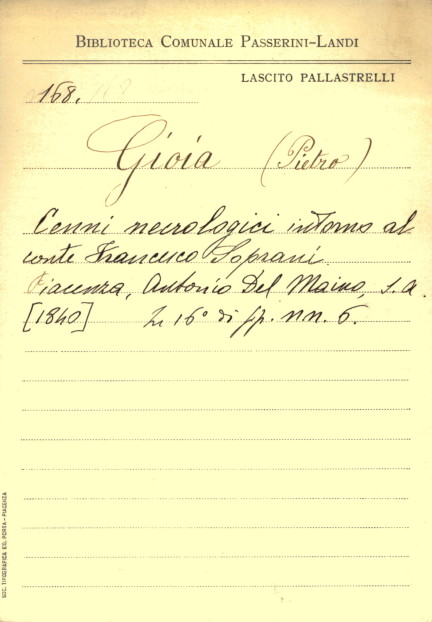 BIBLIOTECA COMUNALE PASSERINI-LANDI
LASCITO PALLASTRELLI
168.
Gioia (Pietro)
Cenni necrologici intorno al
conte Francesco Soprani.
Piacenza, Antonio Del Maino, s.a.
[1840] In 16° di pp. nn. 6.
SOC. TIPOGRAFICA ED. PORTA - PIACENZA